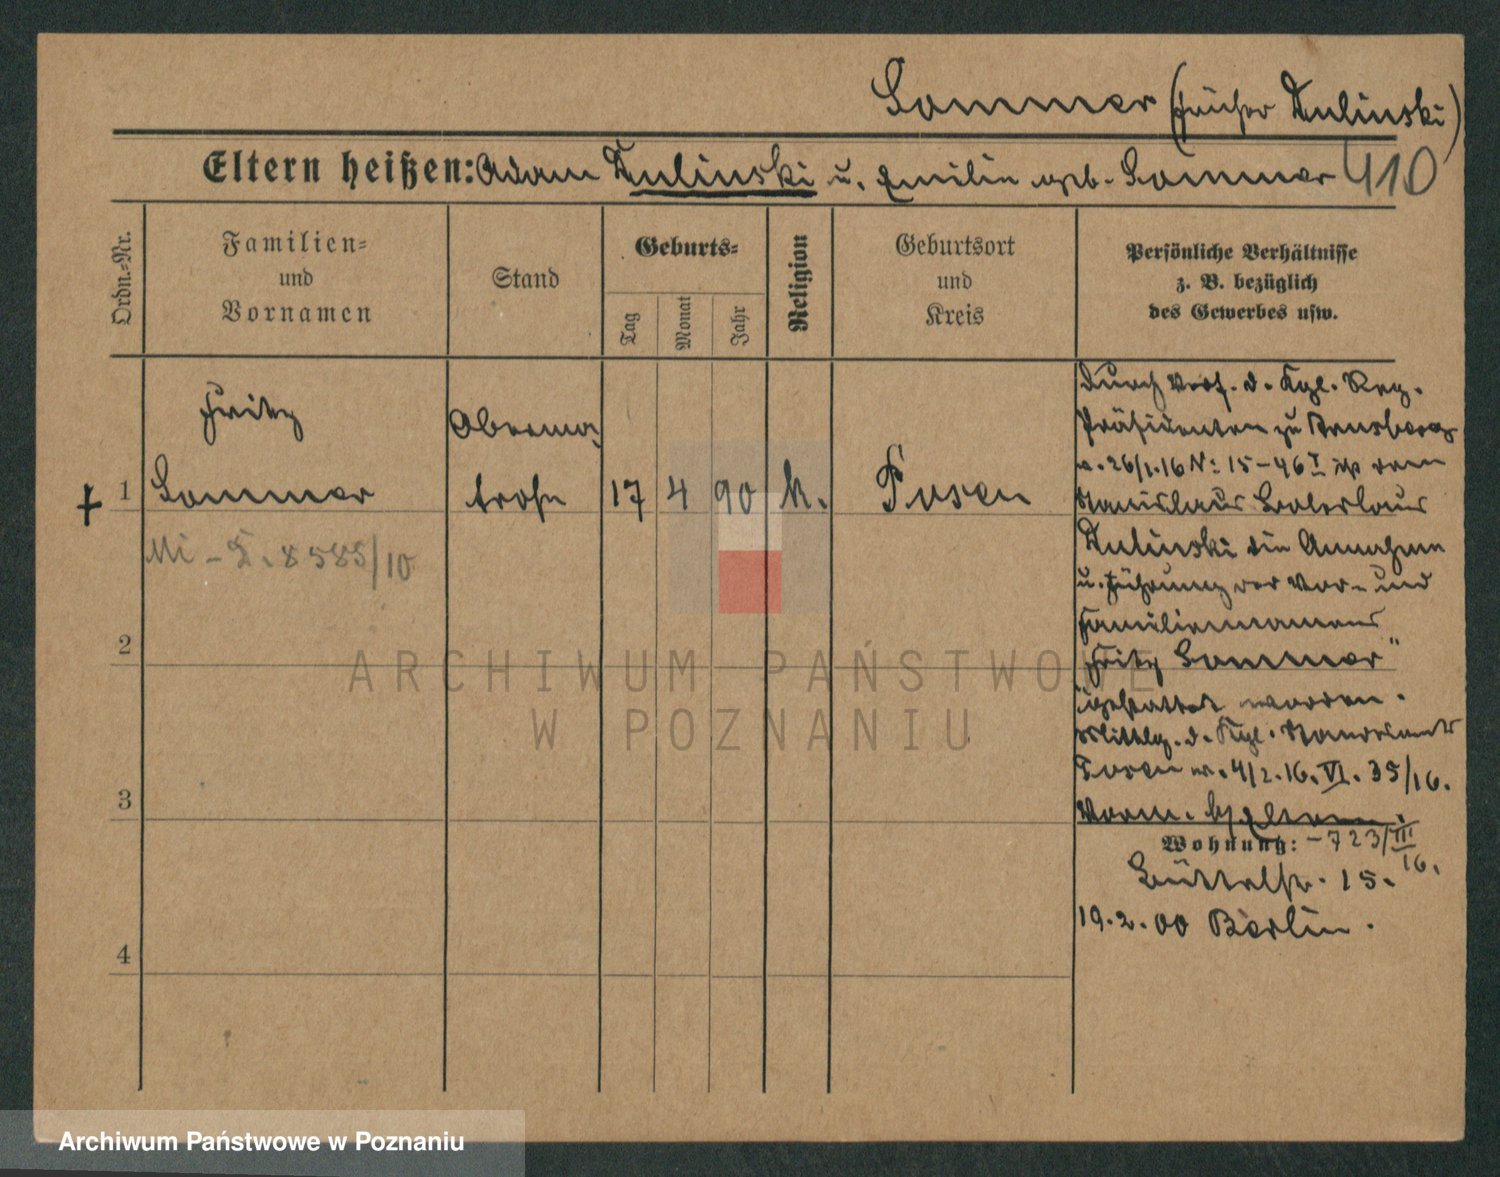 Sommer (früher Dulinski)
Eltern heißen: Adam Dulinski u. Emilie geb. Sommer 410
Ordn.=Nr.
Familien=
und
Vornamen
Stand
Geburts=
Tag
Monat
Jahr
Religion
Geburtsort
und
Kreis
Persönliche Verhältnisse
z. B. bezüglich
des Gewerbes usw.
Fritz
Oberma-
1 Sommer
trose
17 4 90 k. Posen
Mi - 8585/10
2
3
4
Durch Verf. d. Kgl. Reg.
Präsidenten zu Arnsberg
v. 26/1.16 N: 15-46 I ist dem
Stanislaus Boleslaus
Dulinski die Annahme
u. Führung des Vor- und
Familiennamens
"Fritz Sommer"
gestattet worden.
Mittlg. d. Kgl. Standesamts
Posen v. 4/2.16. VI. 35/16.
Wohnung: -723/III
16.
Büttelstr. 15.
19.2.00 Berlin.
ARCHIWUM PAŃSTWOWE
W POZNANIU
Archiwum Państwowe w Poznaniu